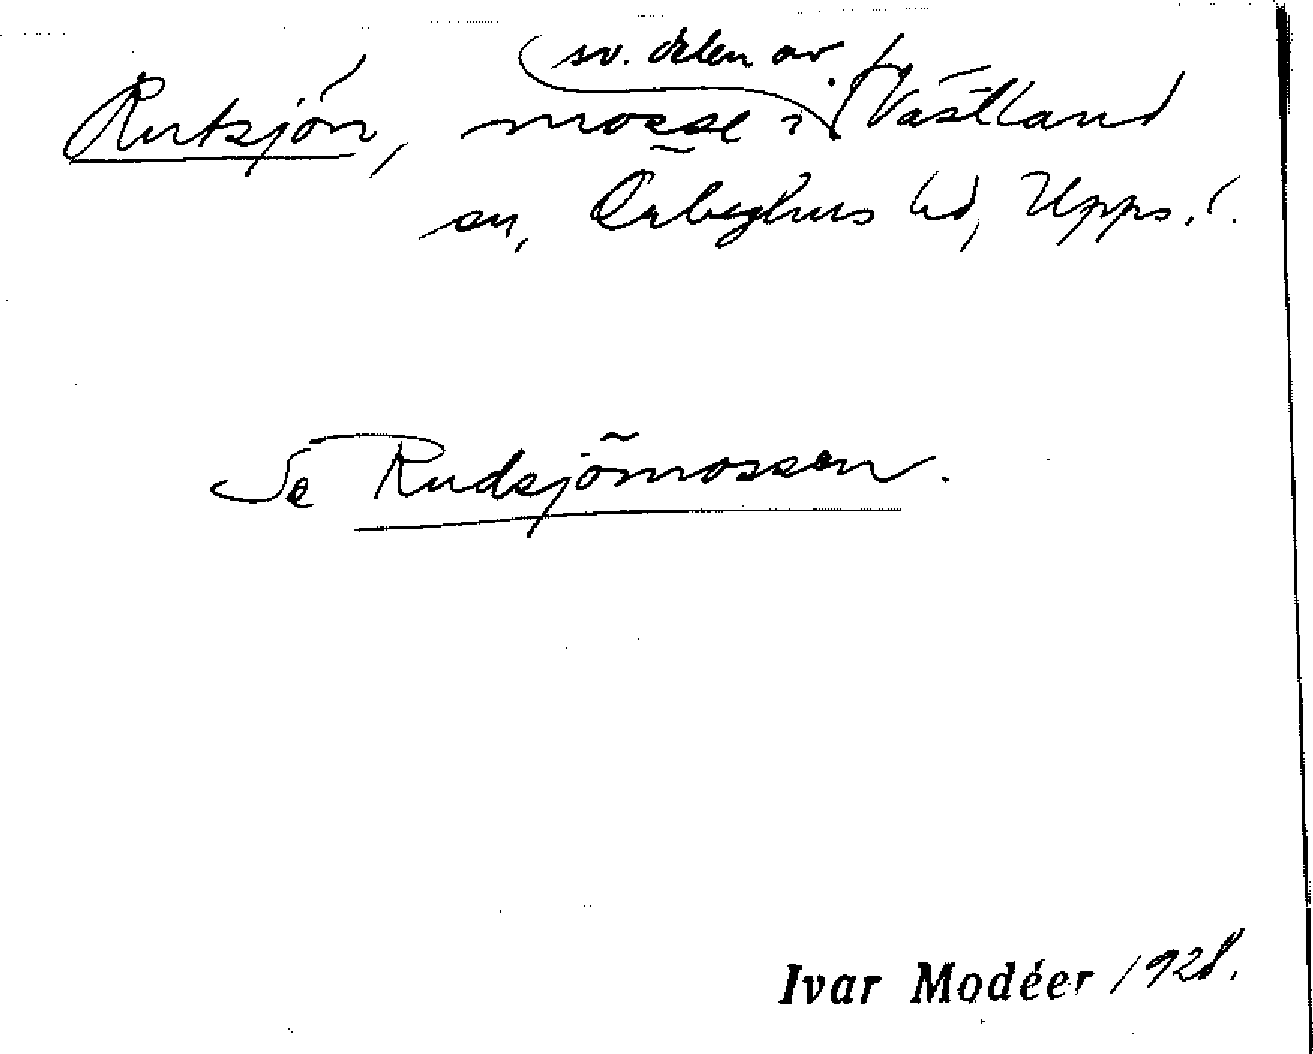 Rutsjön, mosse i sv. delen av Västland
sn, Örbyhus hd, Upps. l.
Se Rudsjömossen.
Ivar Modéer 1928.